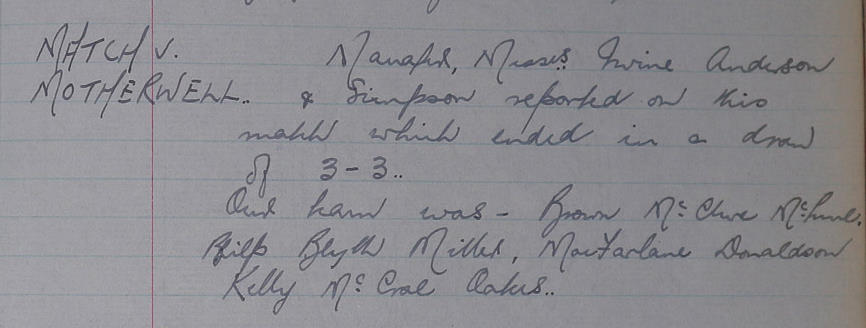 MATCH V. Manager, Messrs Irvine Anderson
MOTHERWELL.. & Simpson reported on this
match which ended in a draw
of 3-3..
Our team was - Brown McClure
Philp Blyth Miller, MacFarlane Donaldson
Kelly McCrae Oakes..